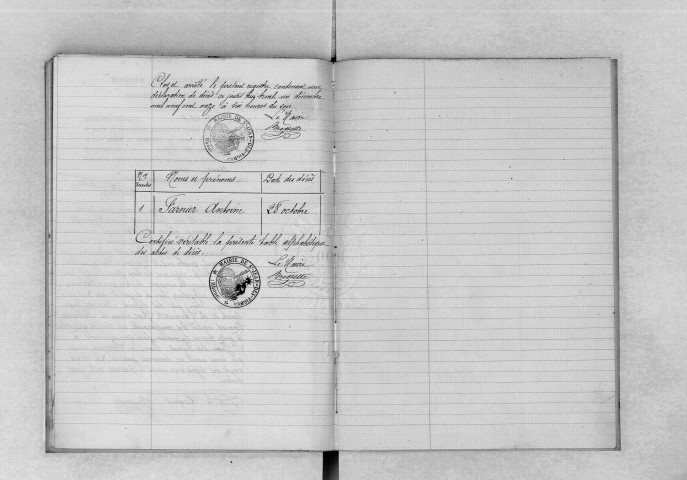 Clos et arrêté le présent registre contenant une
déclaration de décès ce jourd'huy trente un décembre
mil neuf cent onze à six heures du soir
Le Maire
MAIRIE DE
Nos
Noms et prénoms
Date des décès
1
Farnier Antoine
28 octobre
Certifiée véritable la présente table alphabétique
des actes de décès.
Le Maire
MAIRIE DE